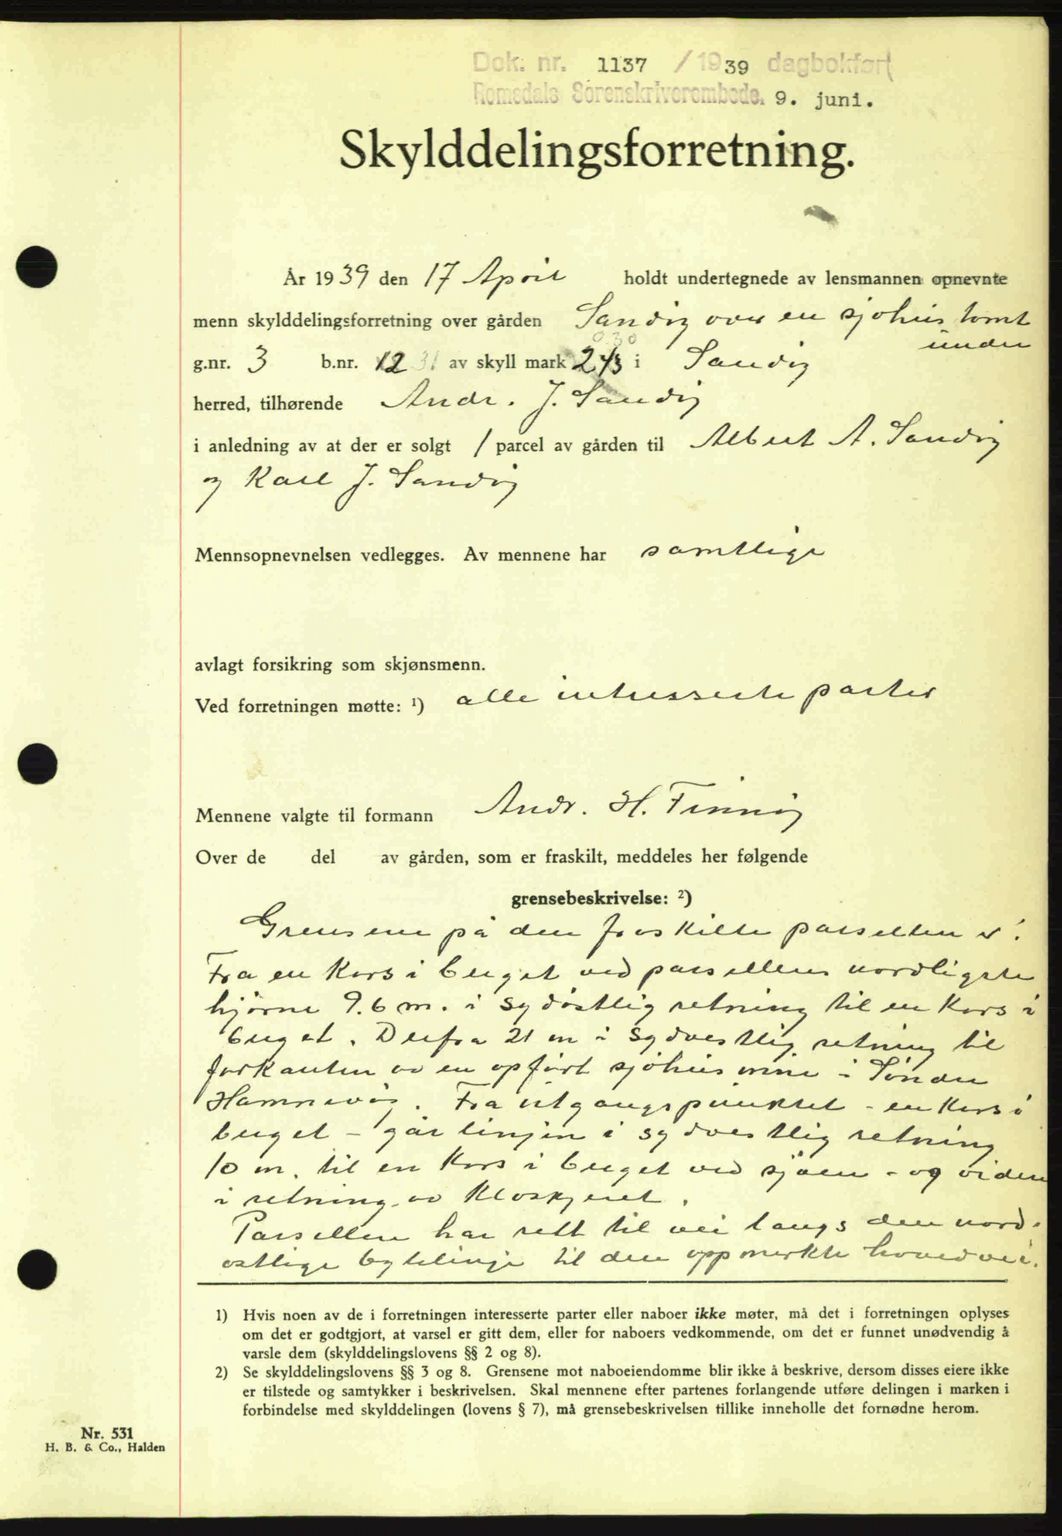 Dok. nr. 1137 / 1939 dagbokført
Romsdals Sorenskriverembede. 9. juni.
Skylddelingsforretning.
År 1939 den 17 April holdt undertegnede av lensmannen opnevnte
menn skylddelingsforretning over gården Sandøy over en sjøhus tomt
under
g.nr. 3 b.nr. 12 31 av skyll mark i Sandøy
herred, tilhørende Andr. J. Sandøy
i anledning av at der er solgt 1 parcel av gården til Albert A. Sandøy
og Karl J. Sandøy
Mennsopnevnelsen vedlegges. Av mennene har samtlige
avlagt forsikring som skjønsmenn.
Ved forretningen møtte: ¹) alle intresserte parter
Mennene valgte til formann Andr. H. Finnøy
Over de del av gården, som er fraskilt, meddeles her følgende
grensebeskrivelse: ²)
Grensene på den fraskilte parsellen er:
Fra en Kors i berget ved parsellens nordligste
hjørne 9.6 m. i sydøstlig retning til en Kors i
berget. Derfra 21 m i sydvestlig retning til
forkanten av en opført sjøhus mur i Søndre
Hamnevåg. Fra utgangspunktet - en Kors i
berget - går linjen i sydvestlig retning
10 m. til en Kors i berget ved sjøen - og viden
i retning av Kloskjeret.
Parsellen har rett til vei langs den nord-
østlige bytelinje til den oppmerkte hovedvei.
1) Hvis noen av de i forretningen interesserte parter eller naboer ikke møter, må det i forretningen oplyses
om det er godtgjort, at varsel er gitt dem, eller for naboers vedkommende, om det er funnet unødvendig å
varsle dem (skylddelingslovens §§ 2 og 8).
2) Se skylddelingslovens §§ 3 og 8. Grensene mot naboeiendomme blir ikke å beskrive, dersom disses eiere ikke
er tilstede og samtykker i beskrivelsen. Skal mennene efter partenes forlangende utføre delingen i marken i
forbindelse med skylddelingen (lovens § 7), må grensebeskrivelsen tillike inneholle det fornødne herom.
Nr. 531
H. B. & Co., Halden